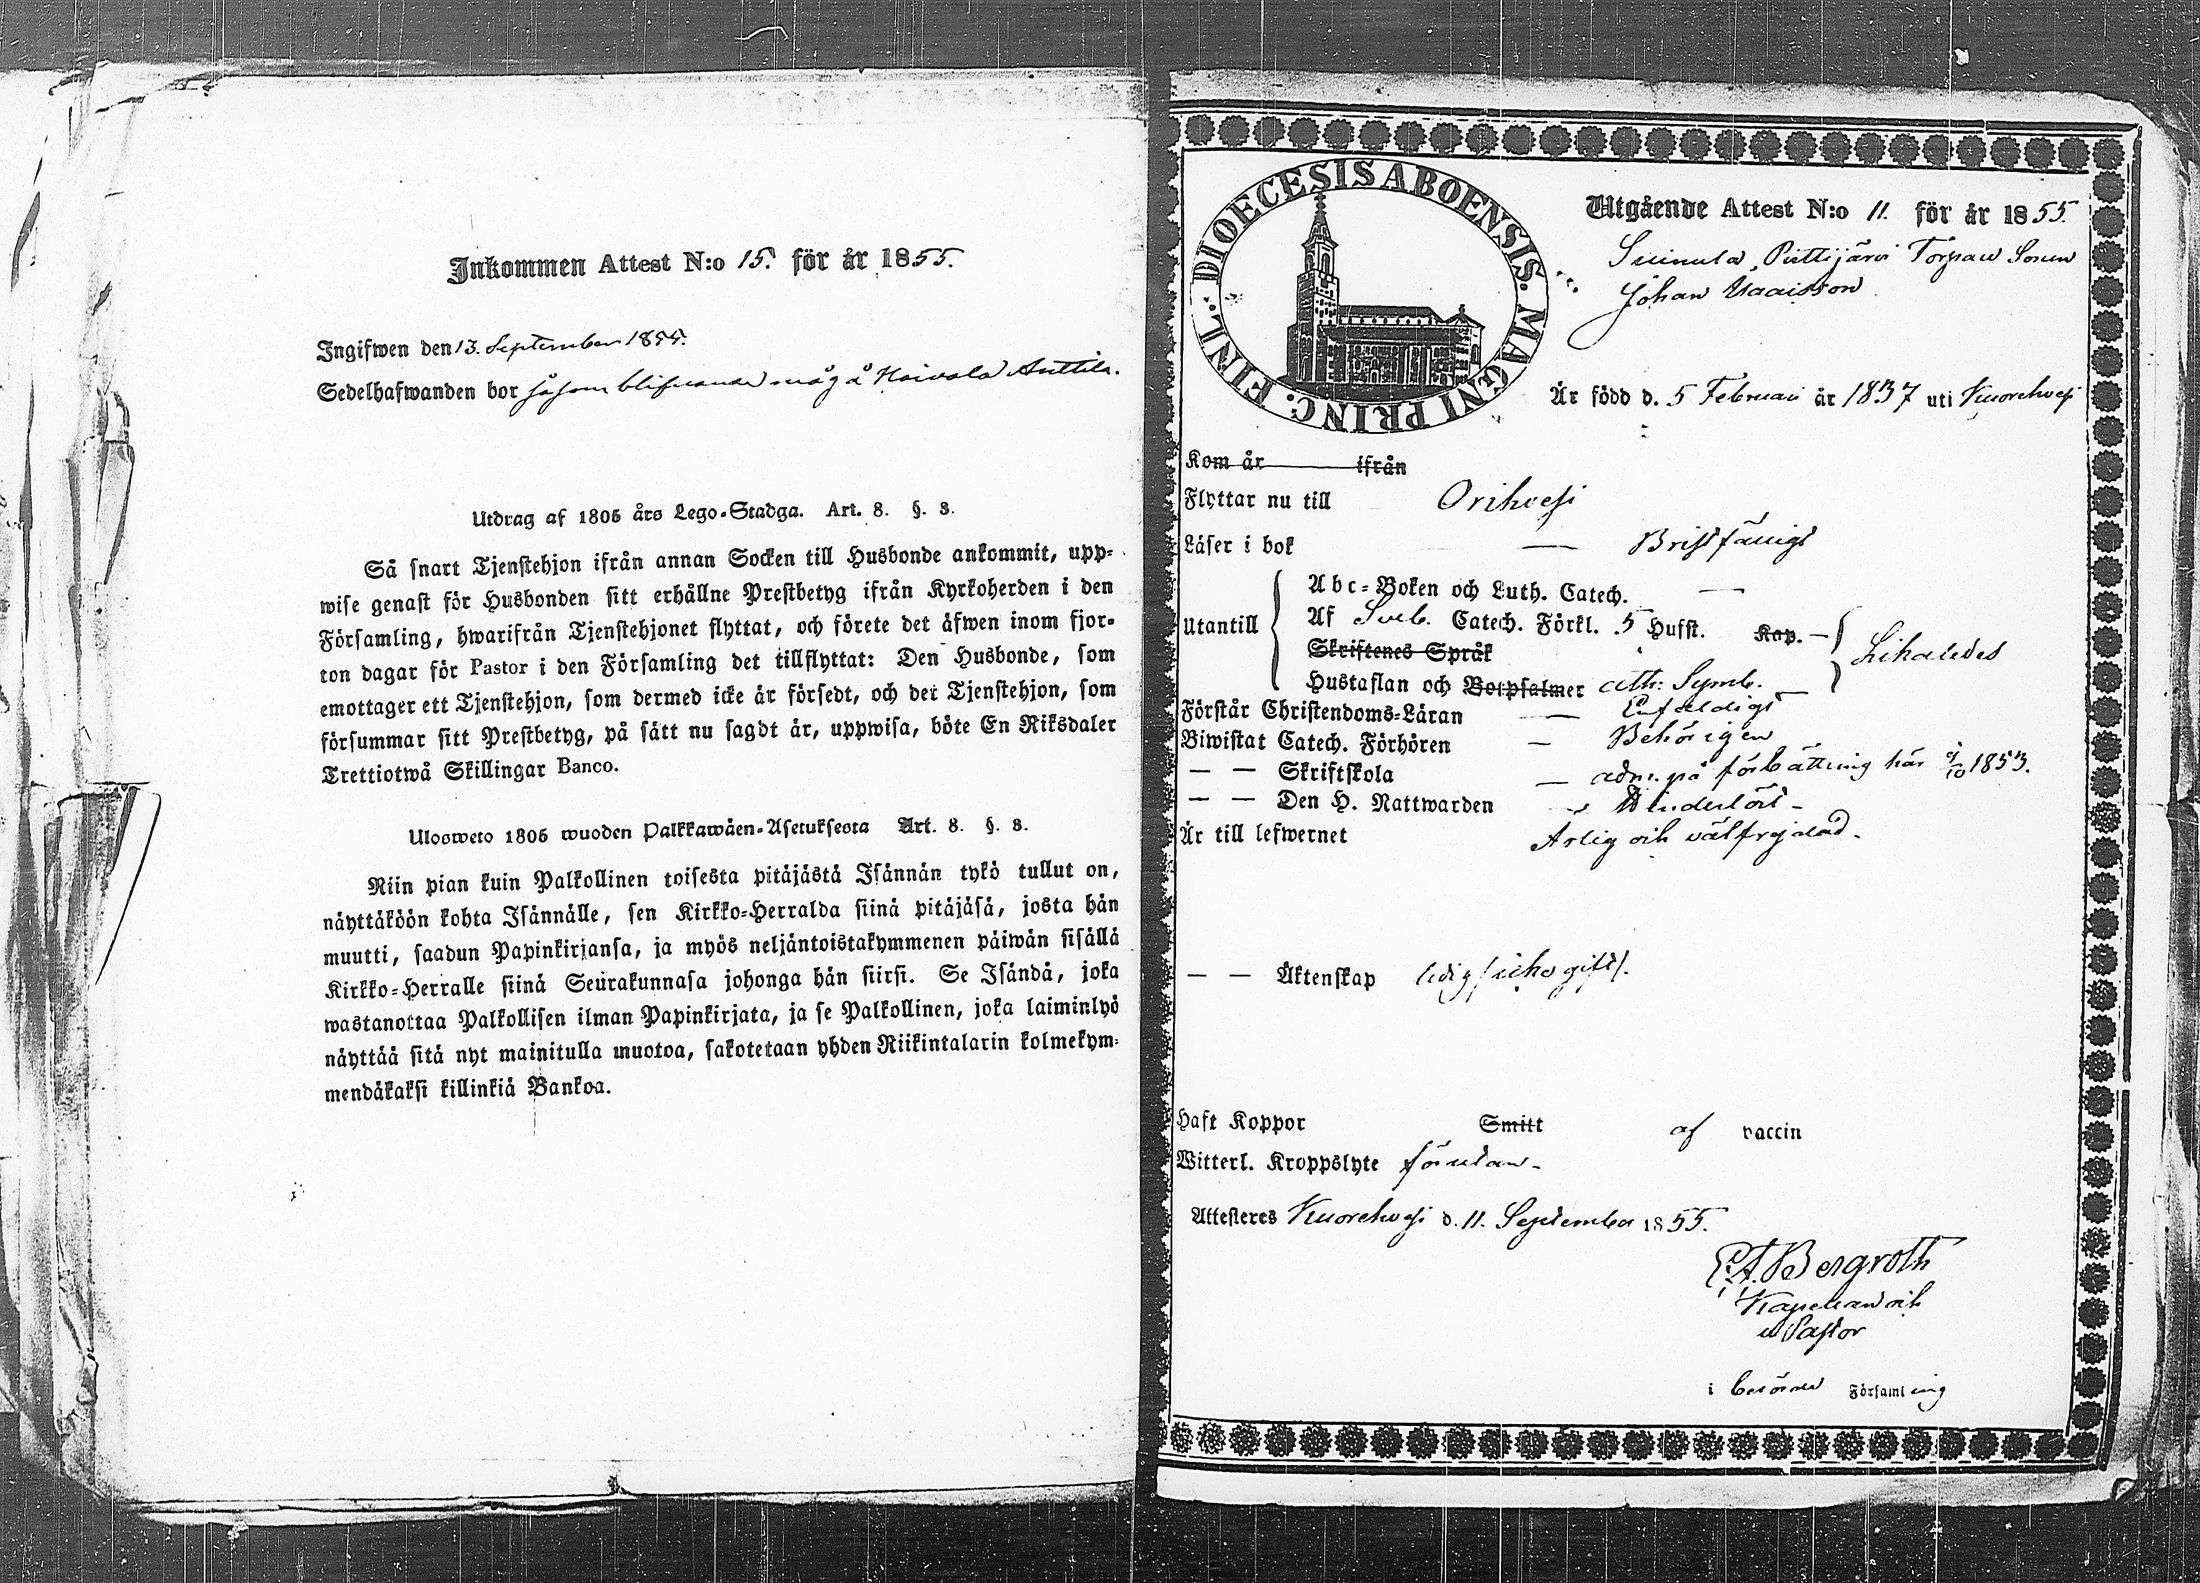 Inkommen Attest N:o 15. för år 1855.
Ingifwen den 13. September 1855.
Sedelhafwanden bor såsom blifvande måg å Koivola Anttila.
Utdrag af 1805 års Lego-Stadga. Art. 8. §. 3.
Så snart Tjenstehjon ifrån annan Socken till Husbonde ankommit, upp-
wise genast för Husbonden sitt erhållne Prestbetyg ifrån Kyrkoherden i den
Församling, hwarifrån Tjenstehjonet flyttat, och förete det äfwen inom fjor-
ton dagar för Pastor i den Församling det tillflyttat: Den Husbonde, som
emottager ett Tjenstehjon, som dermed icke är försedt, och det Tjenstehjon, som
försummar sitt Prestbetyg, på sätt nu sagdt är, uppwisa, böte En Riksdaler
Trettiotwå Skillingar Banco.
Ulosweto 1805 wuoden Palkkawäen-Asetuksesta Art. 8. §. 3.
Niin pian kuin Palkollinen toisesta pitäjästä Isännän tykö tullut on,
näyttäköön kohta Isännälle, sen Kirkko-Herralda siinä pitäjäsä, josta hän
muutti, saadun Papinkirjansa, ja myös neljäntoistakymmenen päiwän sisällä
Kirkko-Herralle siinä Seurakunnasa johonga hän siirsi. Se Isändä, joka
wastanottaa Palkollisen ilman Papinkirjata, ja se Palkollinen, joka laiminlyö
näyttää sitä nyt mainitulla muotoa, sakotetaan yhden Riikintalarin kolmekym-
mendäkaksi killinkiä Bankoa.
DIOECESIS ABOENSIS. MAGNI PRINC. FINL.
Utgående Attest N:o 11. för år 1855.
Suinula, Torpare Sonen
Johan
Är född d. 5 Februari år 1837 uti Kuorehvesi
Kom år ifrån
Flyttar nu till Orihvesi
Läser i bok — Bristfälligt
Utantill
Abc-Boken och Luth. Catech. —
Af Sveb. Catech. Förkl. 5 Hufst. Kap. —
Skriftenes Språk
Likaledes
Hustaflan och Botpsalmer Ath: Symb. —
Förstår Christendoms-Läran — Enfaldigt
Biwistat Catech. Förhören — Behörigen
— — Skriftskola — adm. på förbättring här 1853.
— — Den H. Nattwarden
Är till lefwernet Ärlig och välfrejdad.
— — Äktenskap ledig (icke gift).
Haft Koppor Smitt af vaccin
Witterl. Kroppslyte förutan.
Attesteres Kuorehvesi d. 11. September 1855.
Bergroth
Kapellan och
v Pastor
i berörde Församling